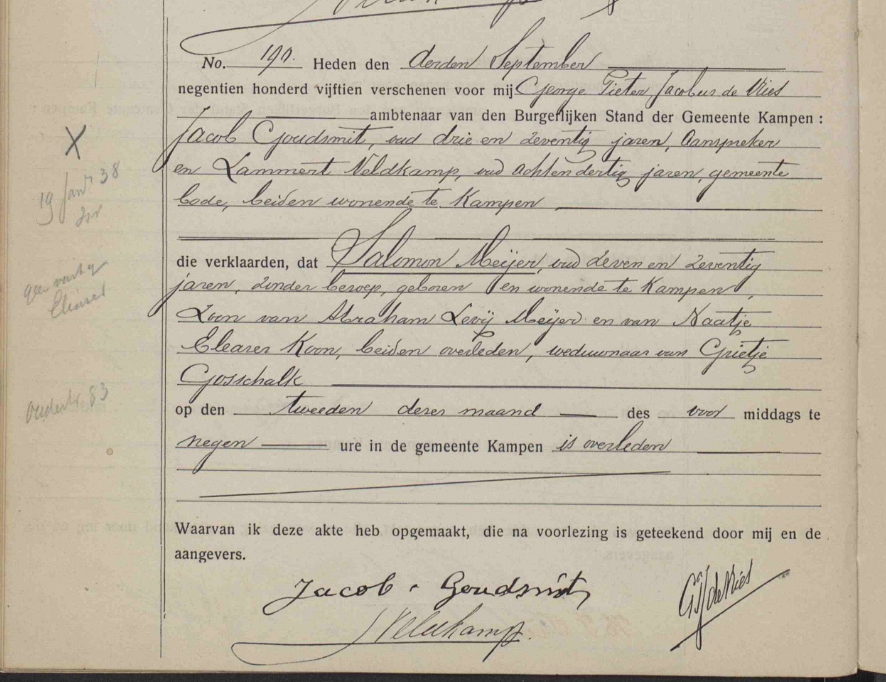 No. 190. Heden den derden September
negentien honderd vijftien verschenen voor mij George Pieter Jacobus de Vries
ambtenaar van den Burgerlijken Stand der Gemeente Kampen :
Jacob Goudsmit, oud drie en zeventig jaren, Aanspreker
en Lammert Veldkamp, oud achtendertig jaren, gemeente
bode, beiden wonende te Kampen
die verklaarden, dat Salomon Meijer, oud zeven en zeventig
jaren, zonder beroep, geboren en wonende te Kampen,
Zoon van Abraham Levij Meijer en van Naatje
Eleazer Koon, beiden overleden, weduwnaar van Grietje
Gosschalk
op den tweeden dezer maand des voor middags te
negen ure in de gemeente Kampen is overleden
Waarvan ik deze akte heb opgemaakt, die na voorlezing is geteekend door mij en de
aangevers.
Jacob Goudsmit
GPJ de Vries
LVeldkamp.
X
19 Jan 38
Oudestr. 83